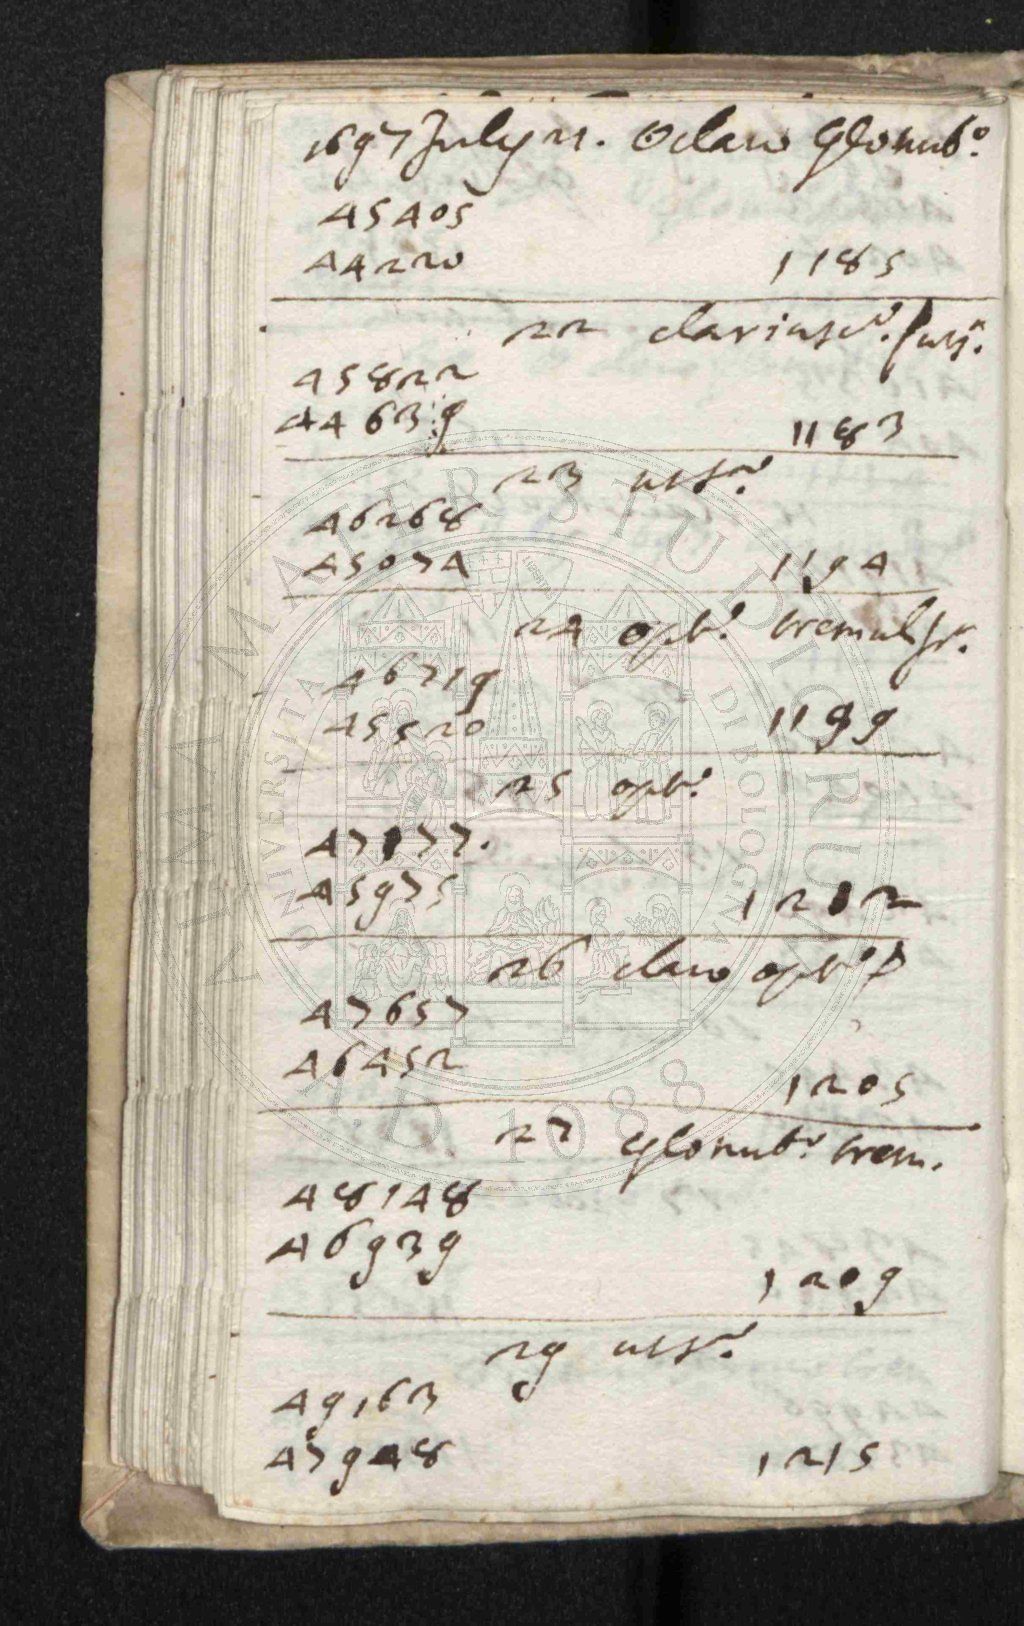 1697 July 21. ☉ claro
45405
44220 1185
22
45822
44639 1183
23
46268
45074 1194
24 opt.º
46719
45520 1199
25 opt.º
47177.
45975 1202
26 claro opt.º
47657
46452 1205
27 trem.
48148
46939 1209
29
49163
47948 1215
ALMA MATER STUDIORUM
UNIVERSITA DI BOLOGNA
A.D. 1088